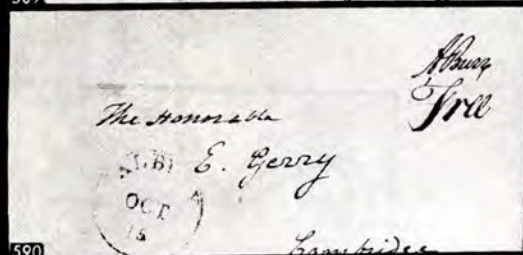 A Burr
Free
The Honorable
E. Gerry
ALB
OCT
15
Cambridge
590